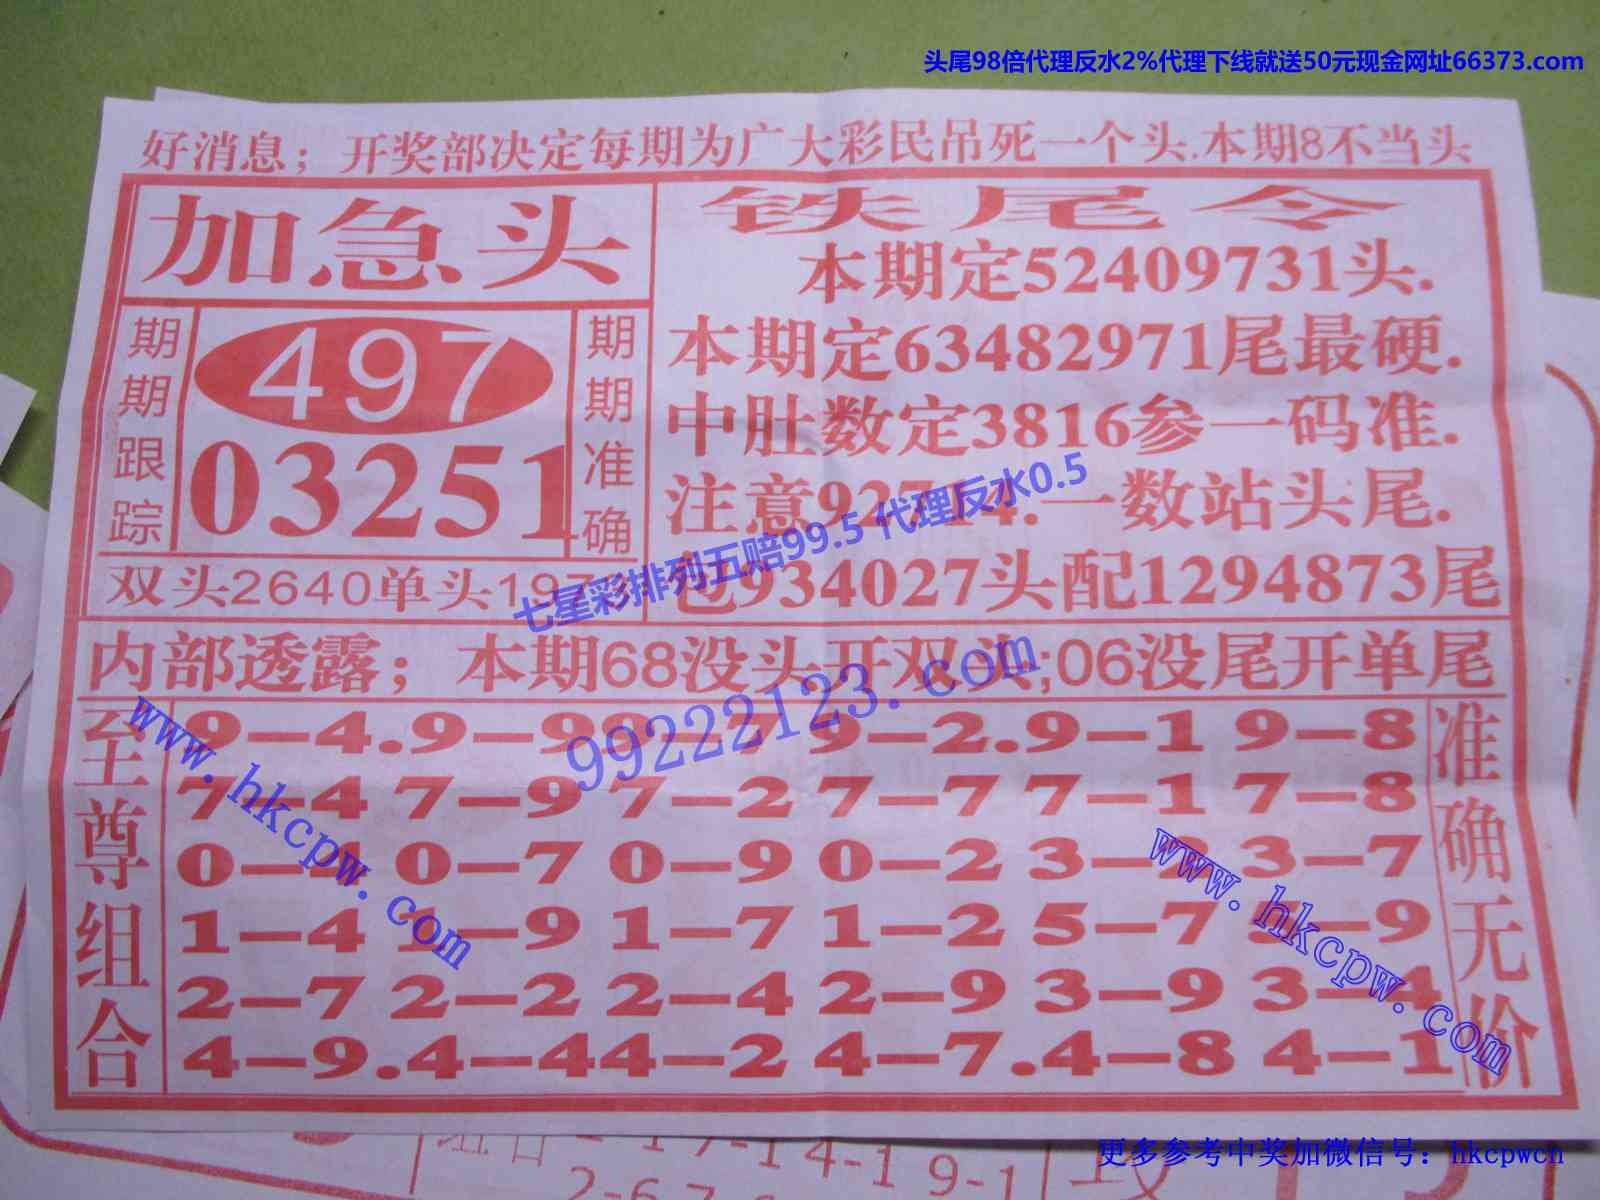 头尾98倍代理反水2%代理下线就送50元现金网址66373.com
好消息；开奖部决定每期为广大彩民吊死一个头.本期8不当头
加急头
期期跟踪
497
03251
期期准确
双头2640单头197
铁尾令
本期定52409731头.
本期定63482971尾最硬.
中肚数定3816参一码准.
注意92714.一数站头尾.
包934027头配1294873尾
七星彩排列五赔99.5 代理反水0.5
内部透露；本期68没头开双头;06没尾开单尾
99222123.com
至尊组合
9—4.9—99—7 9—2.9—1 9—8
7—4 7—9 7—2 7—7 7—1 7—8
0—4 0—7 0—9 0—2 3—2 3—7
1—4 1—9 1—7 1—2 5—7 5—9
2—7 2—2 2—4 2—9 3—9 3—4
4—9.4—44—2 4—7.4—8 4—1
准确无价
www.hkcpw.com
www.hkcpw.com
组合-17-14-19-1
更多参考中奖加微信号：hkcpwcn